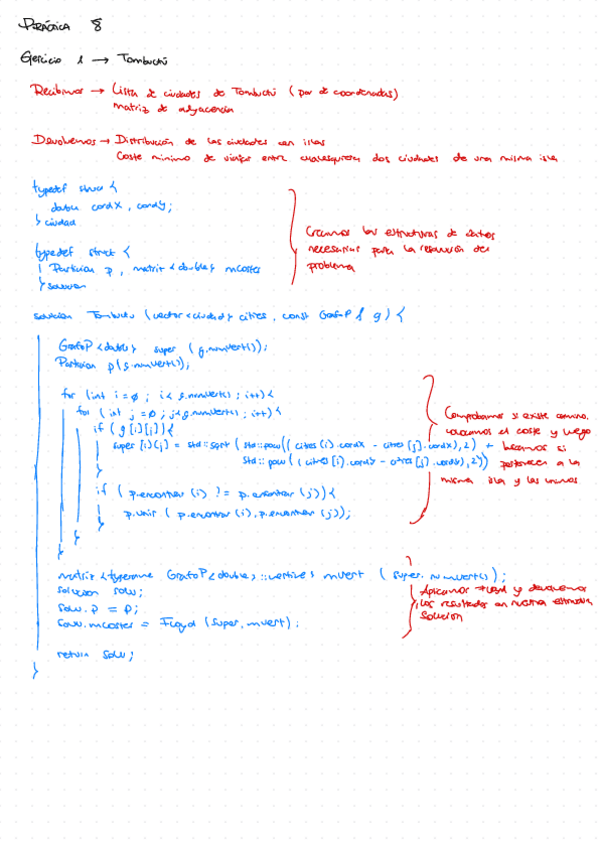 PRÁCTICA 8
Ejercicio 1 → Tombuctú
Recibimos → Lista de ciudades de Tombuctú (par de coordenadas)
matriz de adyacencia
Devolvemos → Distribución de las ciudades en islas
Coste mínimo de viajar entre cualesquiera dos ciudades de una misma isla
typedef struct {
double cordX, cordY;
} ciudad
typedef struct {
Particion p, matriz<double> mcostes
} solucion
Creamos las estructuras de datos
necesarias para la resolución del
problema
solucion Tombuctu (vector<ciudad> cities, const GrafoP& g) {
GrafoP<double> super (g.numVert());
Particion p(g.numVert());
for (int i=0; i<g.numVert(); i++) {
for (int j=0; j<g.numVert(); i++) {
if (g[i][j]) {
super[i][j] = std::sqrt(std::pow((cities[i].cordX - cities[j].cordX),2) +
std::pow((cities[i].cordY - cities[j].cordY),2))
}
if (p.encontrar(i) != p.encontrar(j)) {
p.unir(p.encontrar(i), p.encontrar(j));
}
}
}
Comprobamos si existe camino.
calculamos el coste y luego
vemos si
pertenecen a la
misma isla y las unimos
matriz<typename GrafoP<double>::vertice> mvert (super.numVert());
solucion solu;
solu.p = p;
solu.mcostes = Floyd(super, mvert);
return solu;
}
Aplicamos Floyd y devolvemos
los resultados en nuestra estructura
solución